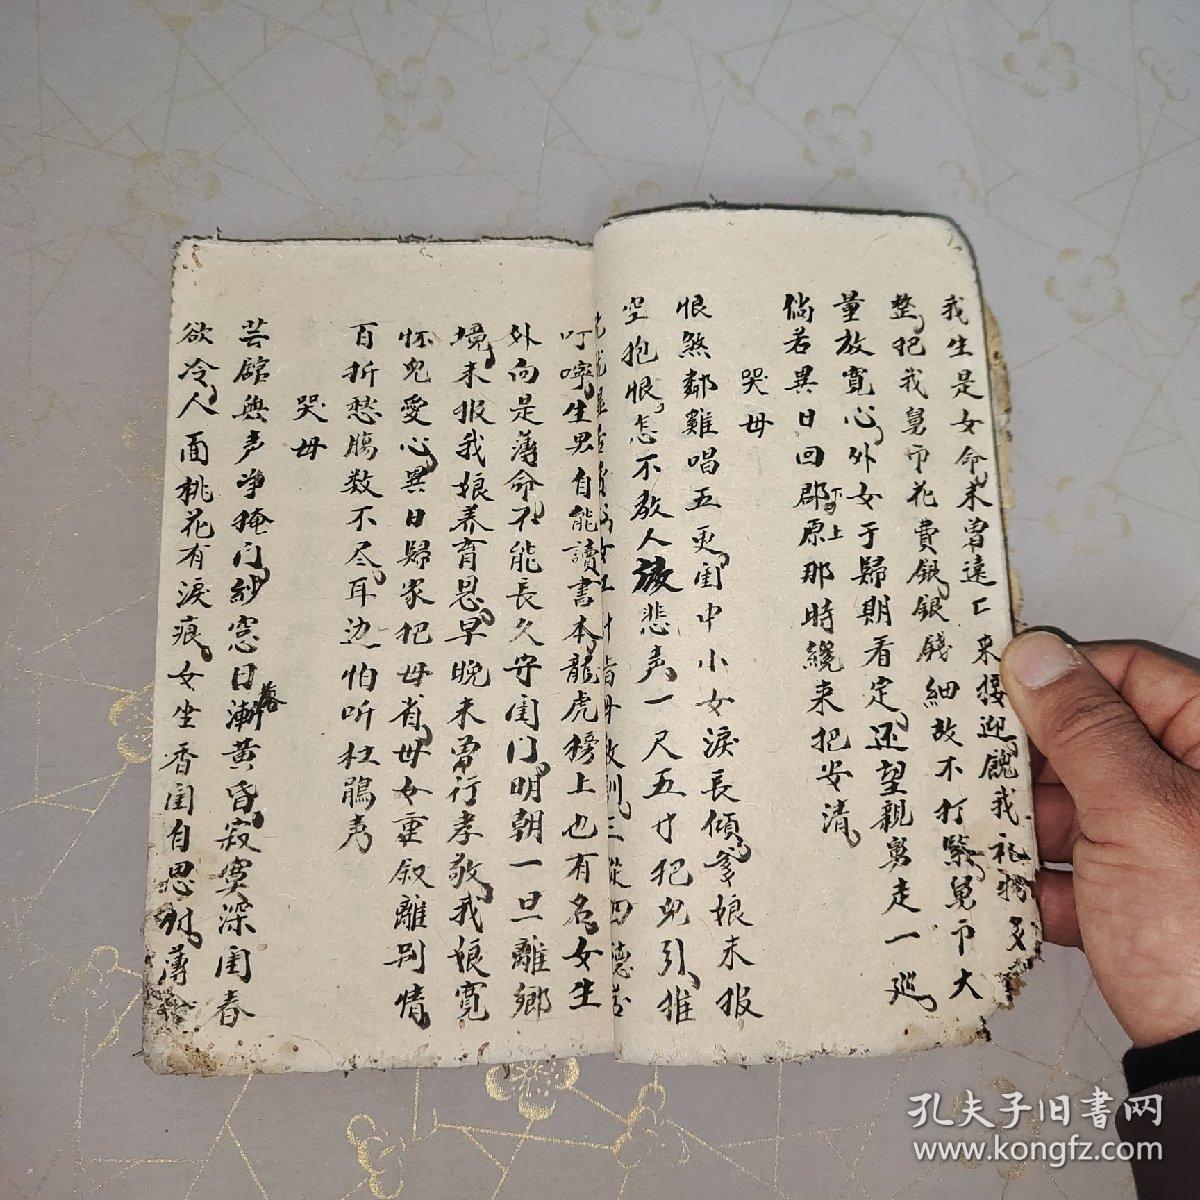 我生是女命未曾遠亡来接迎餽我礼物多
整把我舅巾花費銀銀錢細故不打緊舅巾大
量放寬心外女于歸期看定还望親舅走一巡
倘若異日回郡下可上原那時纔来把安清
哭母
恨煞鄰雞唱五更闺中小女淚長傾爹娘未报
空抱恨怎不教人放悲声一尺五寸把兒引推
三從四德
叮嚀生男自能讀書本龍虎榜上也有名女生
外向是薄命不能長久守闺门明朝一旦離鄉
境未报我娘养育恩早晚未曾行孝敬我娘寬
怀兒愛心異日歸家把母省母女重叙離别情
百折愁腸数不尽耳边怕听杜鵑声
哭母
芸館無声净掩门紗窓日漸暮黄昏寂寞深闺春
欲冷人面桃花有淚痕女坐香闺自思忖薄
孔夫子旧書网
www.kongfz.com